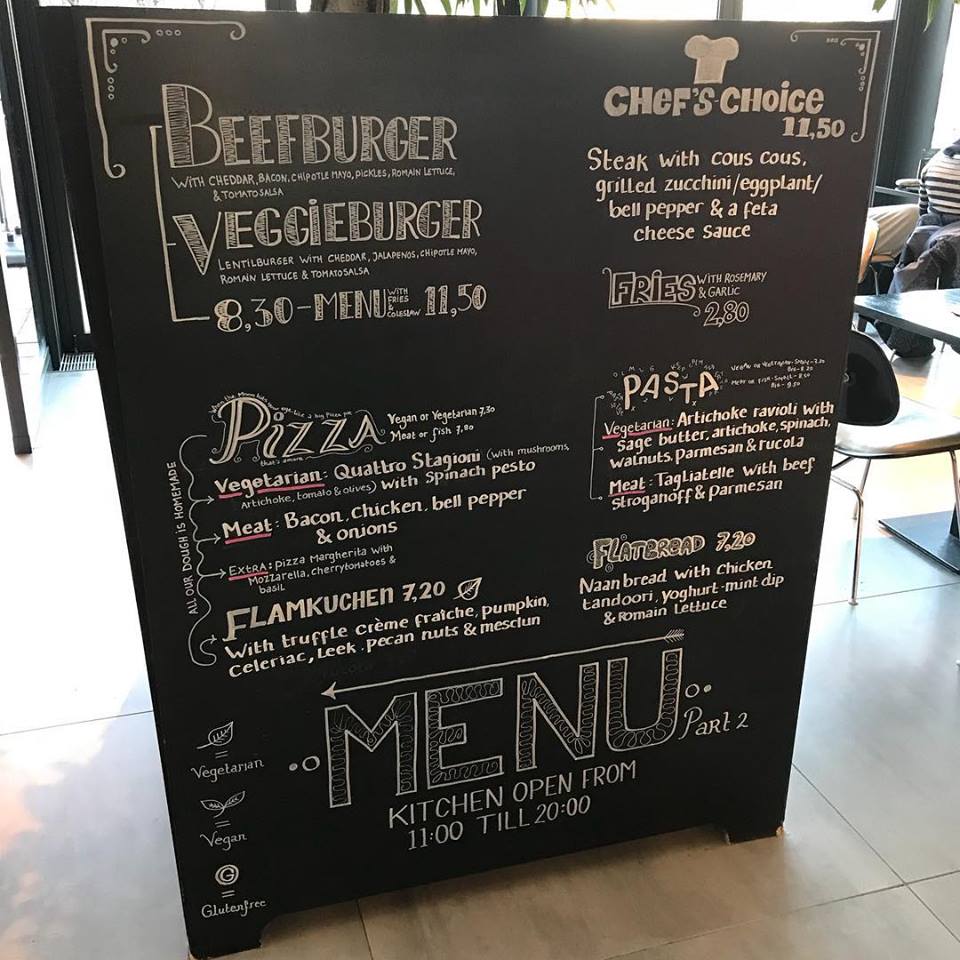 BEEFBURGER
WITH CHEDDAR, BACON, CHIPOTLE MAYO, PICKLES, ROMAIN LETTUCE,
& TOMATOSALSA
VEGGIEBURGER
LENTILBURGER WITH CHEDDAR, JALAPENOS, CHIPOTLE MAYO,
ROMAIN LETTUCE & TOMATOSALSA
8,30 - MENU WITH FRIES COLESLAW 11,50
PIZZA
Vegan or Vegetarian 7,30
Meat or fish 7,80
that's amore
ALL OUR DOUGH IS HOMEMADE
Vegetarian: Quattro Stagioni (with mushrooms,
Artichoke, tomato & olives) with Spinach pesto
Meat: Bacon, chicken, bell pepper
& onions
EXTRA: pizza Margherita with
Mozzarella, cherrytomatoes &
basil
FLAMKUCHEN 7,20
With truffle crème fraîche, pumpkin,
celeriac, leek, pecan nuts & mesclun
CHEF'S CHOICE
11,50
Steak with cous cous,
grilled zucchini/eggplant/
bell pepper & a feta
cheese sauce
FRIES WITH ROSEMARY
& GARLIC
2,80
PASTA
Vegan or Vegetarian - Small - 7.20
Big - 8.20
Meat or Fish - Small - 8.50
Big - 9.50
Vegetarian: Artichoke ravioli with
sage butter, artichoke, spinach,
walnuts, Parmesan & rucola
Meat: Tagliatelle with beef
Stroganoff & Parmesan
FLATBREAD 7,20
Naanbread with chicken
tandoori, yoghurt-mint dip
& Romain lettuce
MENU
Part 2
KITCHEN OPEN FROM
11:00 TILL 20:00
=
Vegetarian
=
Vegan
G
=
Glutenfree